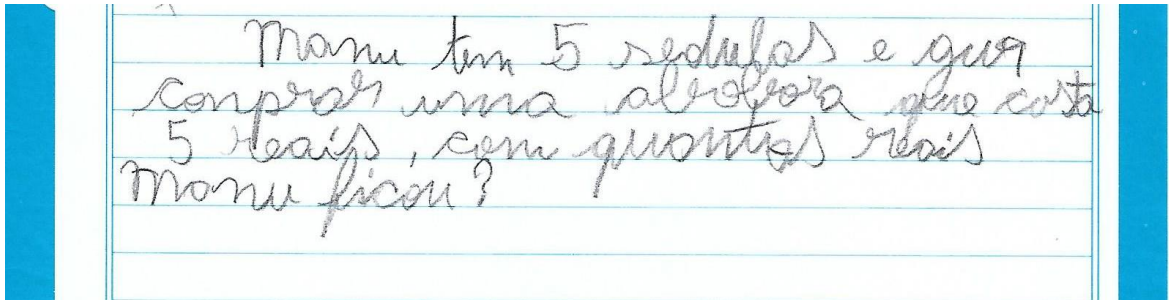 Manu tem 5 sedulas e quer
conprar uma abobora que costa
5 reais, com quantos reais
Manu ficou?